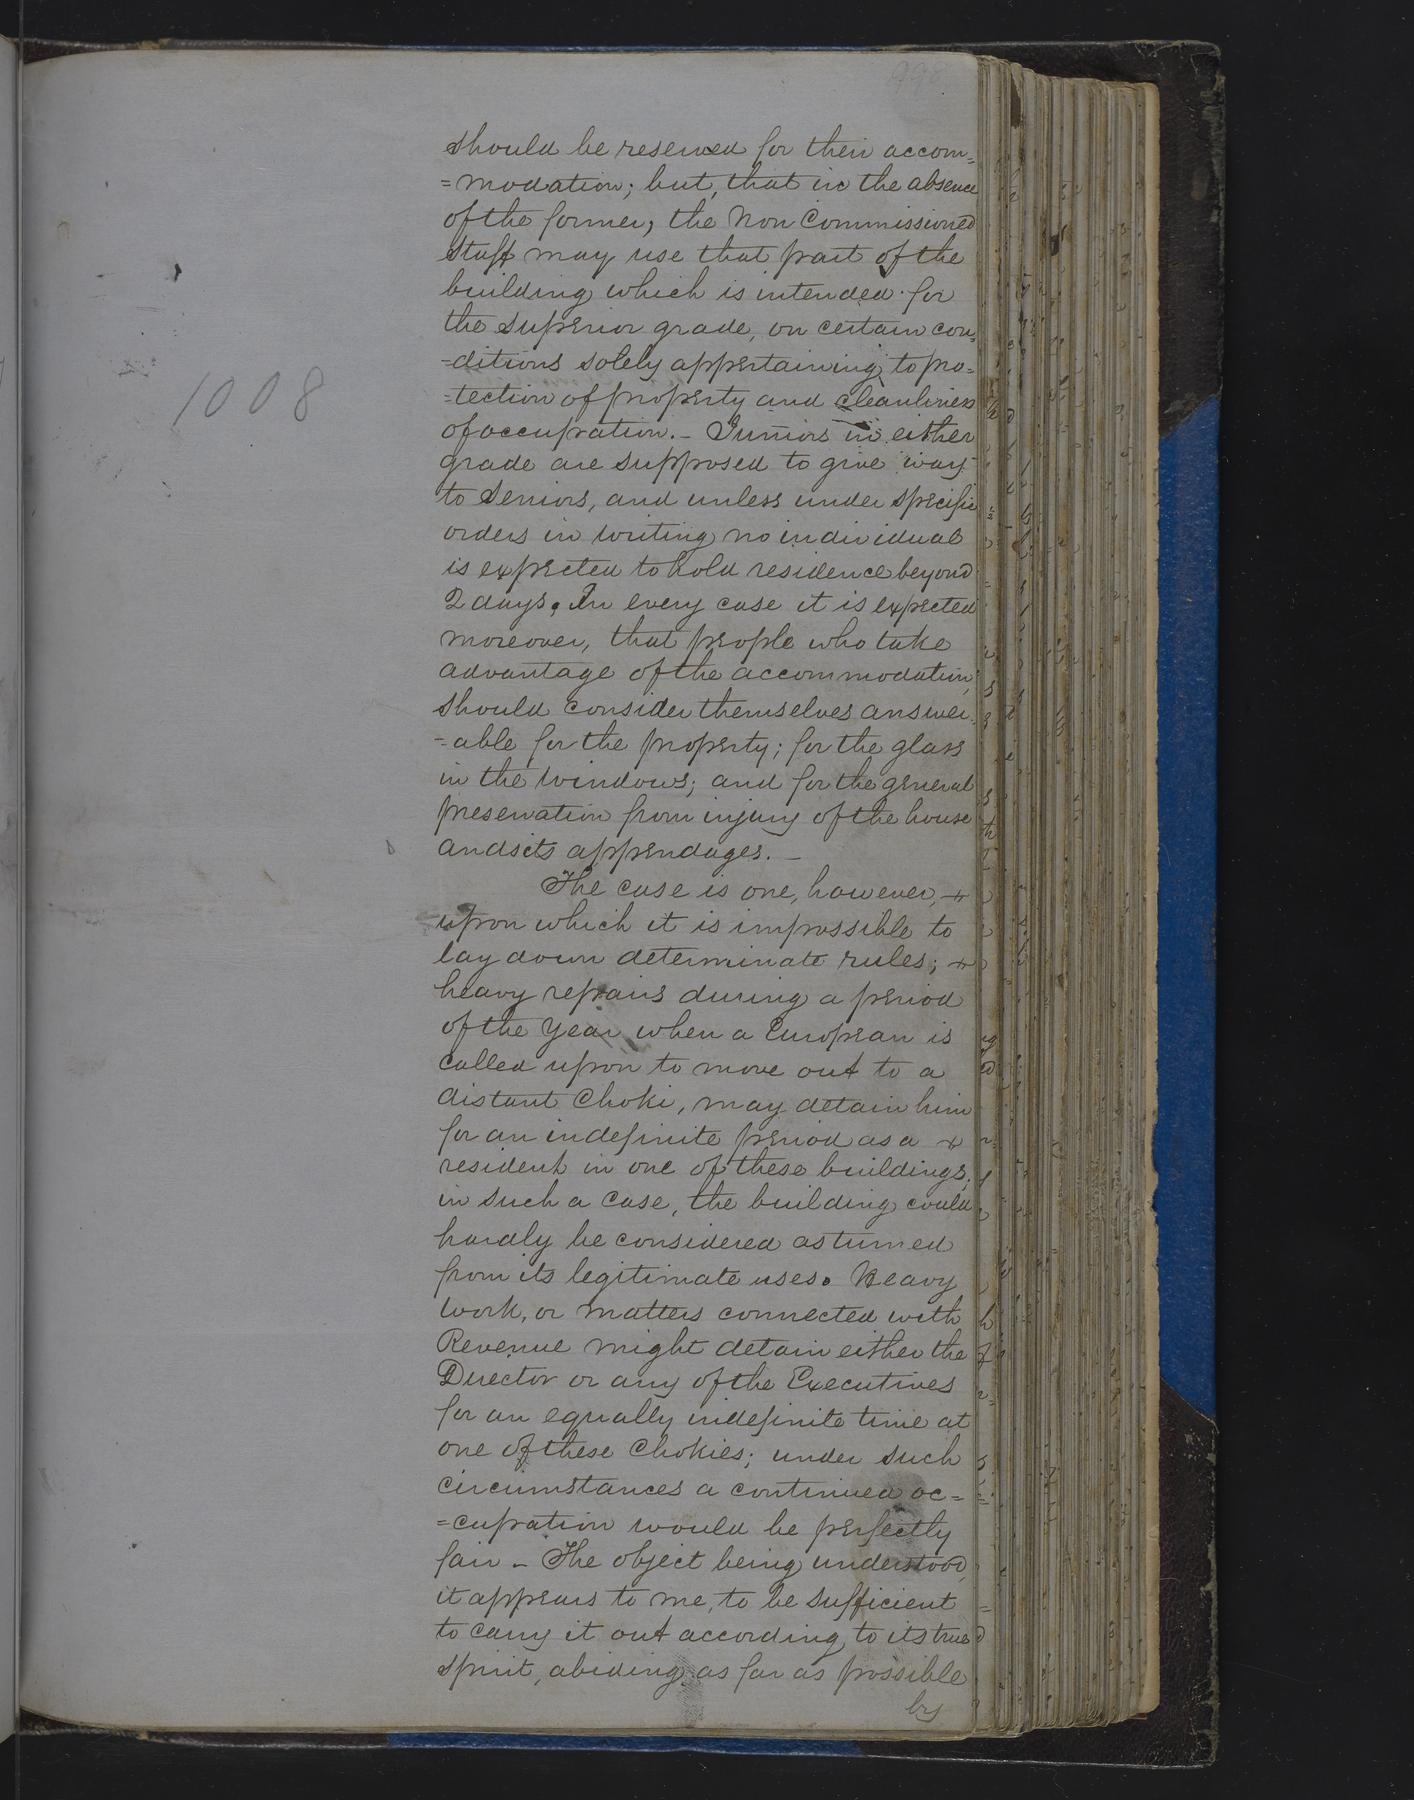 998
should be reserved for their accom=
=modation; but, that in the absence
of the former, the Non Commissioned
Staff may use that part of the
building which is intended for
the Superior grade, on certain con=
=ditions solely appertaining to pro=
=tection of property and cleanliness
of occupation. - Juniors in either
grade are supposed to give way
to Seniors, and unless under specific
orders in writing no individual
is expected to hold residence beyond
2 days. In every case it is expected
moreover, that people who take
advantage of the accommodation,
should consider themselves answer=
=able for the property; for the glass
in the windows; and for the general
preservation from injury of the house
and its appendages. -
The case is one, however,
upon which it is impossible to
lay down determinate rules;
heavy repairs during a period
of the Year when a European is
called upon to move out to a
distant Choki, may detain him
for an indefinite period as a
resident in one of these buildings;
in such a case, the building could
hardly be considered as turned
from its legitimate uses. Heavy
work, or matters connected with
Revenue might detain either the
Director or any of the Executives
for an equally indefinite time at
one of these Chokies; under such
circumstances a continued oc=
=cupation would be perfectly
fair - The object being understood,
it appears to me, to be sufficient
to carry it out according to its true
spirit, abiding as far as possible
by
1008